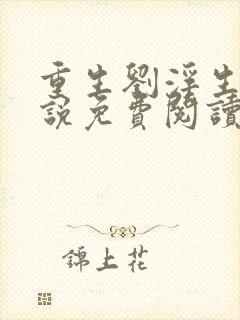 重生劉淫生
說免費閱讀
錦上花